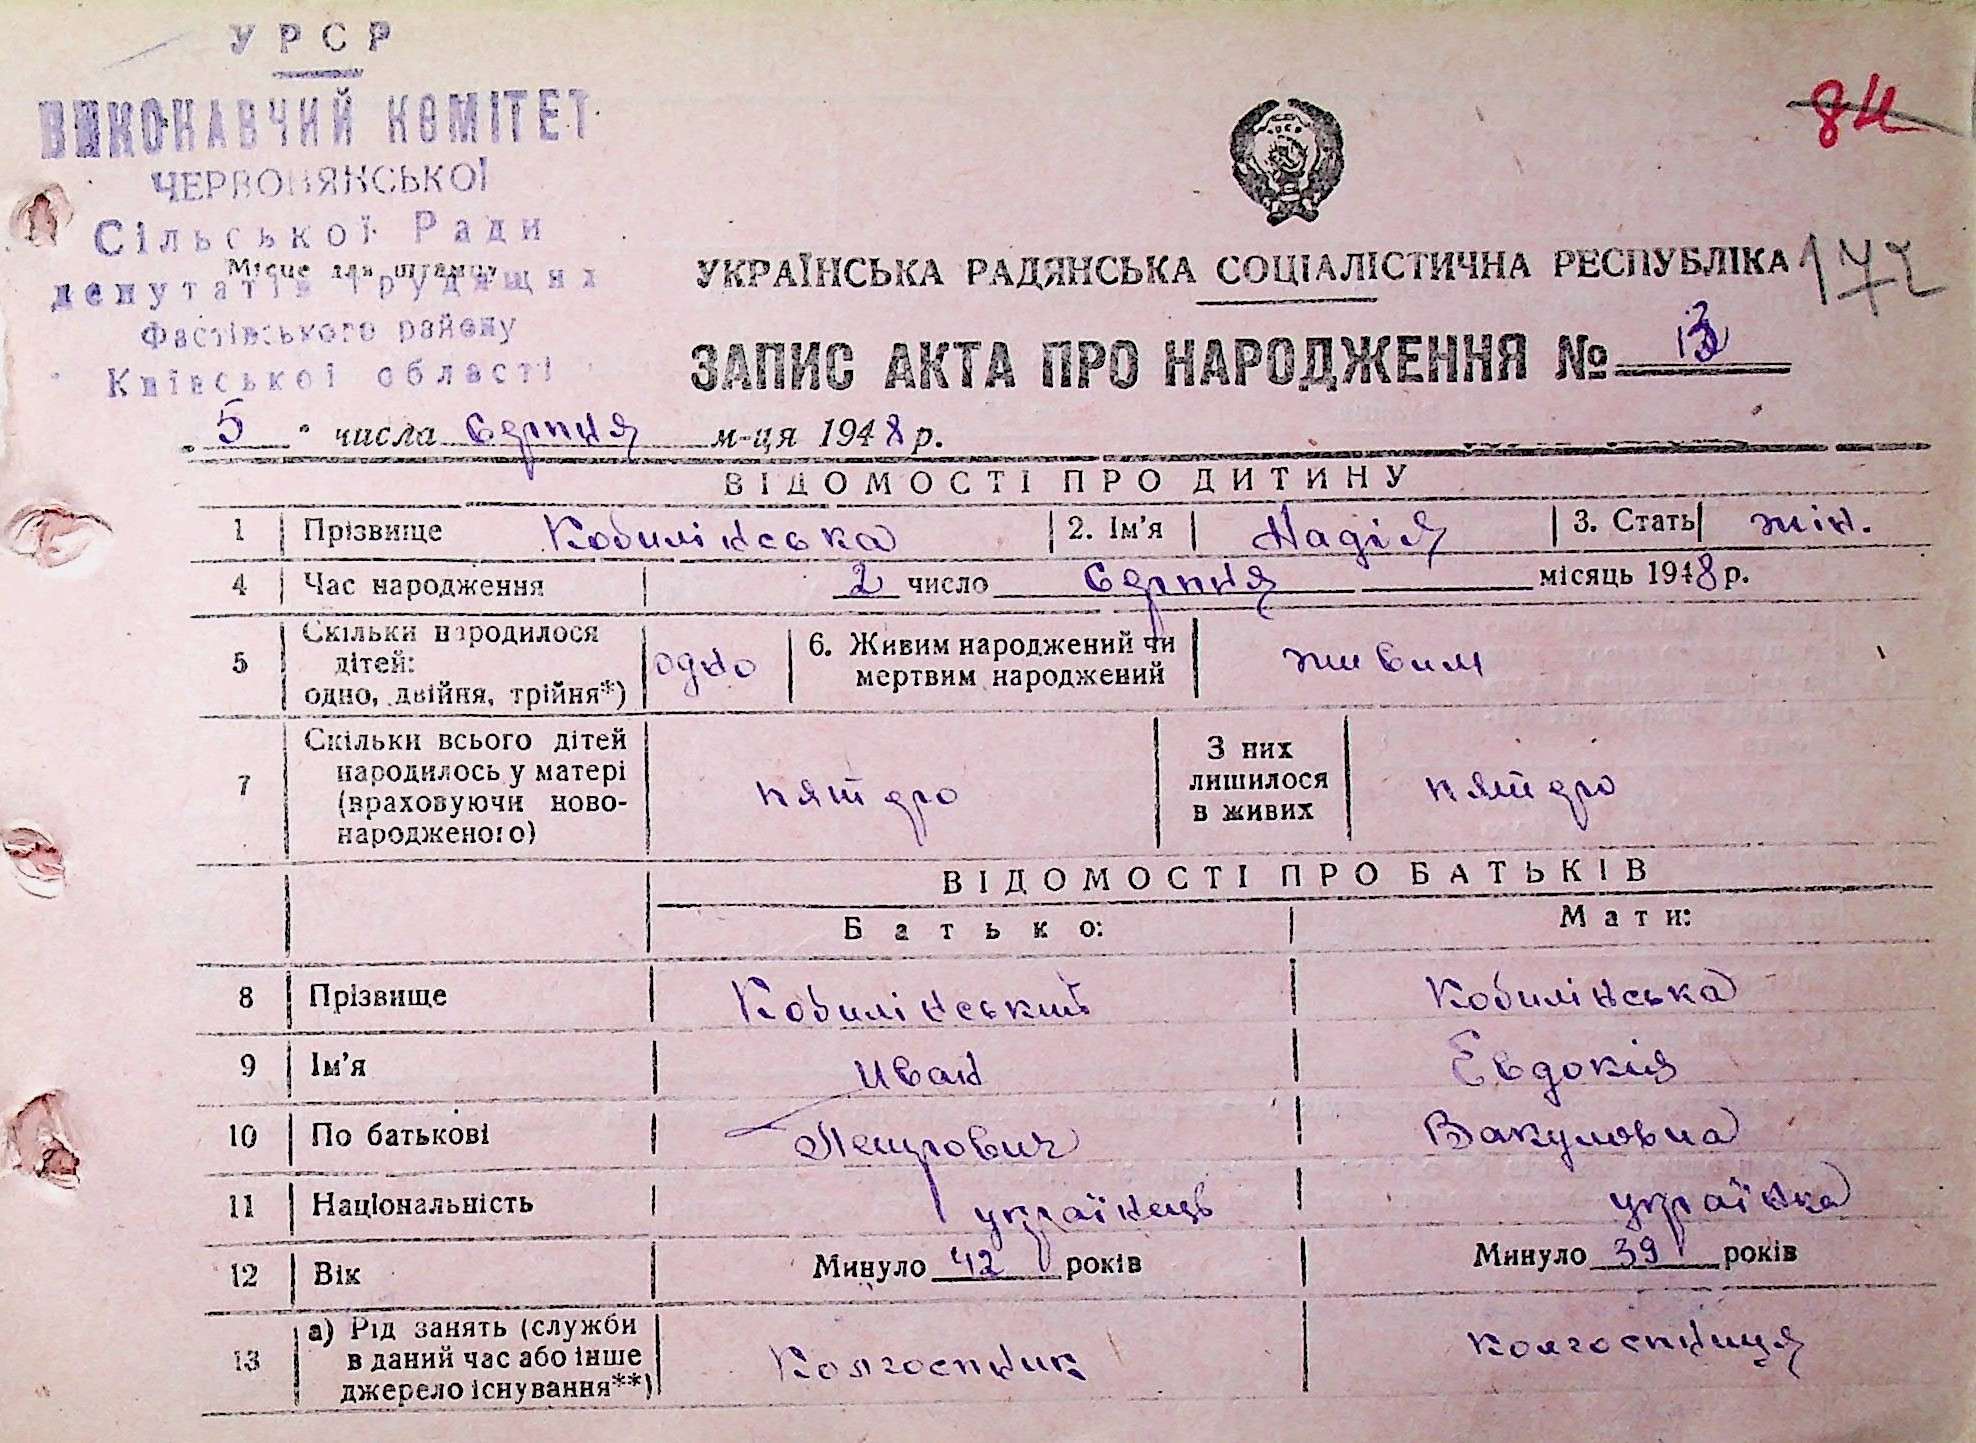 УРСР
ВИКОНАВЧИЙ КОМІТЕТ
ЧЕРВОНЯНСЬКОЇ
Сільської Ради
Місце для штампу
депутатів трудящих
Фастівського району
Київської області
84
172
УКРАЇНСЬКА РАДЯНСЬКА СОЦІАЛІСТИЧНА РЕСПУБЛІКА
ЗАПИС АКТА ПРО НАРОДЖЕННЯ №
„5“ числа Серпня м-ця 1948 р.
ВІДОМОСТІ ПРО ДИТИНУ
1 Прізвище Кобилінська 2. Ім'я Надія 3. Стать жін.
4 Час народження 2 число Серпня місяць 1948 р.
5 Скільки народилося дітей: одно, двійня, трійня*) одно 6. Живим народжений чи мертвим народжений живим
7 Скільки всього дітей народилось у матері (враховуючи новонародженого) пятдро З них лишилося в живих пятдро
ВІДОМОСТІ ПРО БАТЬКІВ
Батько: Мати:
8 Прізвище Кобилінський Кобилінська
9 Ім'я Иван Евдокия
10 По батькові Петрович Вакумовна
11 Національність українець українка
12 Вік Минуло 42 років Минуло 39 років
13 а) Рід занять (служби в даний час або інше джерело існування**) Колгоспник Колгоспниця